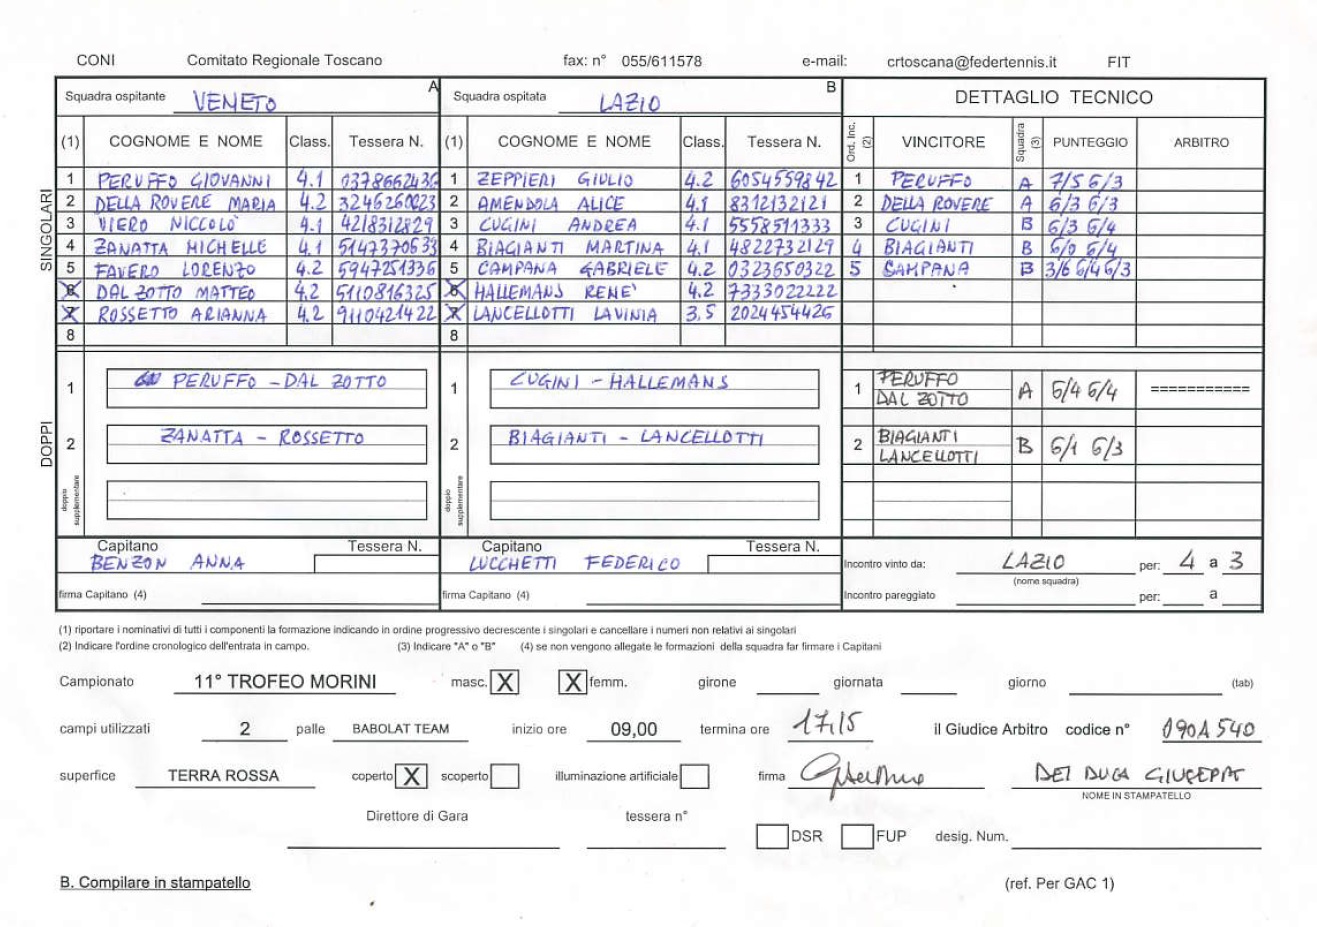 CONI Comitato Regionale Toscano fax: n° 055/611578 e-mail: crtoscana@federtennis.it FIT
Squadra ospitante VENETO A Squadra ospitata LAZIO B DETTAGLIO TECNICO
(1) COGNOME E NOME Class. Tessera N. (1) COGNOME E NOME Class. Tessera N. Ord. Inc. (2) VINCITORE Squadra (3) PUNTEGGIO ARBITRO
SINGOLARI
1 PERUFFO GIOVANNI 4.1 0378662436 1 ZEPPIERI GIULIO 4.2 6054559842 1 PERUFFO A 7/5 6/3
2 DELLA ROVERE MARIA 4.2 3246260023 2 AMENDOLA ALICE 4.1 8312132121 2 DELLA ROVERE A 6/3 6/3
3 VIERO NICCOLO' 4.1 4218312829 3 CUGINI ANDREA 4.1 5558511333 3 CUGINI B 6/3 6/4
4 ZANATTA MICHELLE 4.1 5147370633 4 BIAGIANTI MARTINA 4.1 4822732129 4 BIAGIANTI B 6/0 6/4
5 FAVERO LORENZO 4.2 5947251336 5 CAMPANA GABRIELE 4.2 0323650322 5 CAMPANA B 3/6 6/4 6/3
6 DAL ZOTTO MATTEO 4.2 5110816325 6 HALLEMANS RENE' 4.2 7333022222
7 ROSSETTO ARIANNA 4.2 9110421422 7 LANCELLOTTI LAVINIA 3.5 2024454426
8 8
DOPPI
1 PERUFFO - DAL ZOTTO 1 CUGINI - HALLEMANS 1 PERUFFO DAL ZOTTO A 6/4 6/4 ===========
2 ZANATTA - ROSSETTO 2 BIAGIANTI - LANCELLOTTI 2 BIAGIANTI LANCELLOTTI B 6/1 6/3
doppio supplementare doppio supplementare
Capitano Tessera N. Capitano Tessera N.
BENZON ANNA LUCCHETTI FEDERICO Incontro vinto da: LAZIO per: 4 a 3
(nome squadra)
firma Capitano (4) firma Capitano (4) Incontro pareggiato per: a
(1) riportare i nominativi di tutti i componenti la formazione indicando in ordine progressivo decrescente i singolari e cancellare i numeri non relativi ai singolari
(2) Indicare l'ordine cronologico dell'entrata in campo. (3) Indicare "A" o "B" (4) se non vengono allegate le formazioni della squadra far firmare i Capitani
Campionato 11° TROFEO MORINI masc. X X femm. girone giornata giorno (tab)
campi utilizzati 2 palle BABOLAT TEAM inizio ore 09,00 termina ore 17,15 il Giudice Arbitro codice n° 090A540
superfice TERRA ROSSA coperto X scoperto illuminazione artificiale firma DEI DUCA GIUSEPPE
NOME IN STAMPATELLO
Direttore di Gara tessera n°
DSR FUP desig. Num.
B. Compilare in stampatello (ref. Per GAC 1)